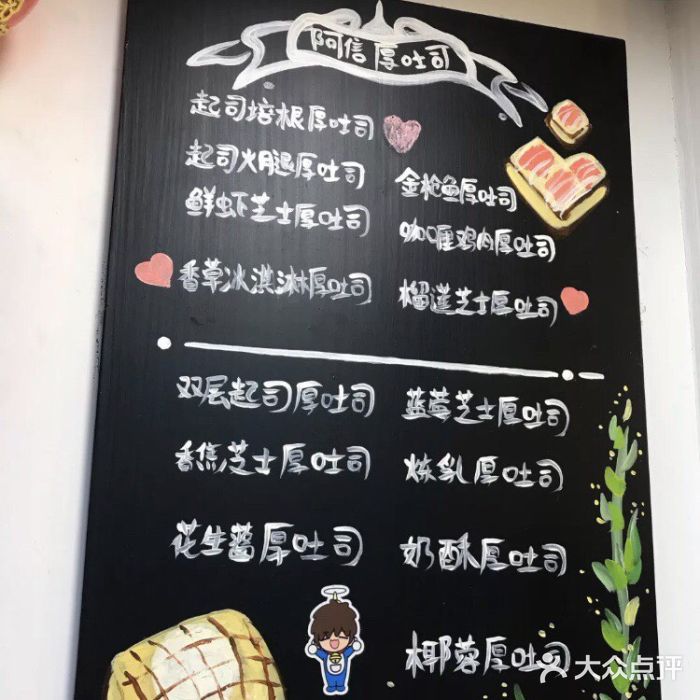 阿信厚吐司
起司培根厚吐司
起司火腿厚吐司
鲜虾芝士厚吐司
香草冰淇淋厚吐司
金枪鱼厚吐司
咖喱鸡肉厚吐司
榴莲芝士厚吐司
双层起司厚吐司
香焦芝士厚吐司
花生酱厚吐司
蓝莓芝士厚吐司
炼乳厚吐司
奶酥厚吐司
椰蓉厚吐司
大众点评